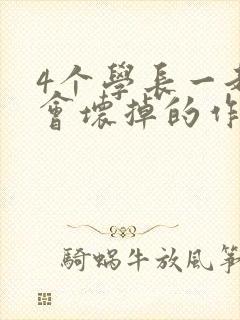 4个學長一
會壞掉的作
騎蝸牛放風箏